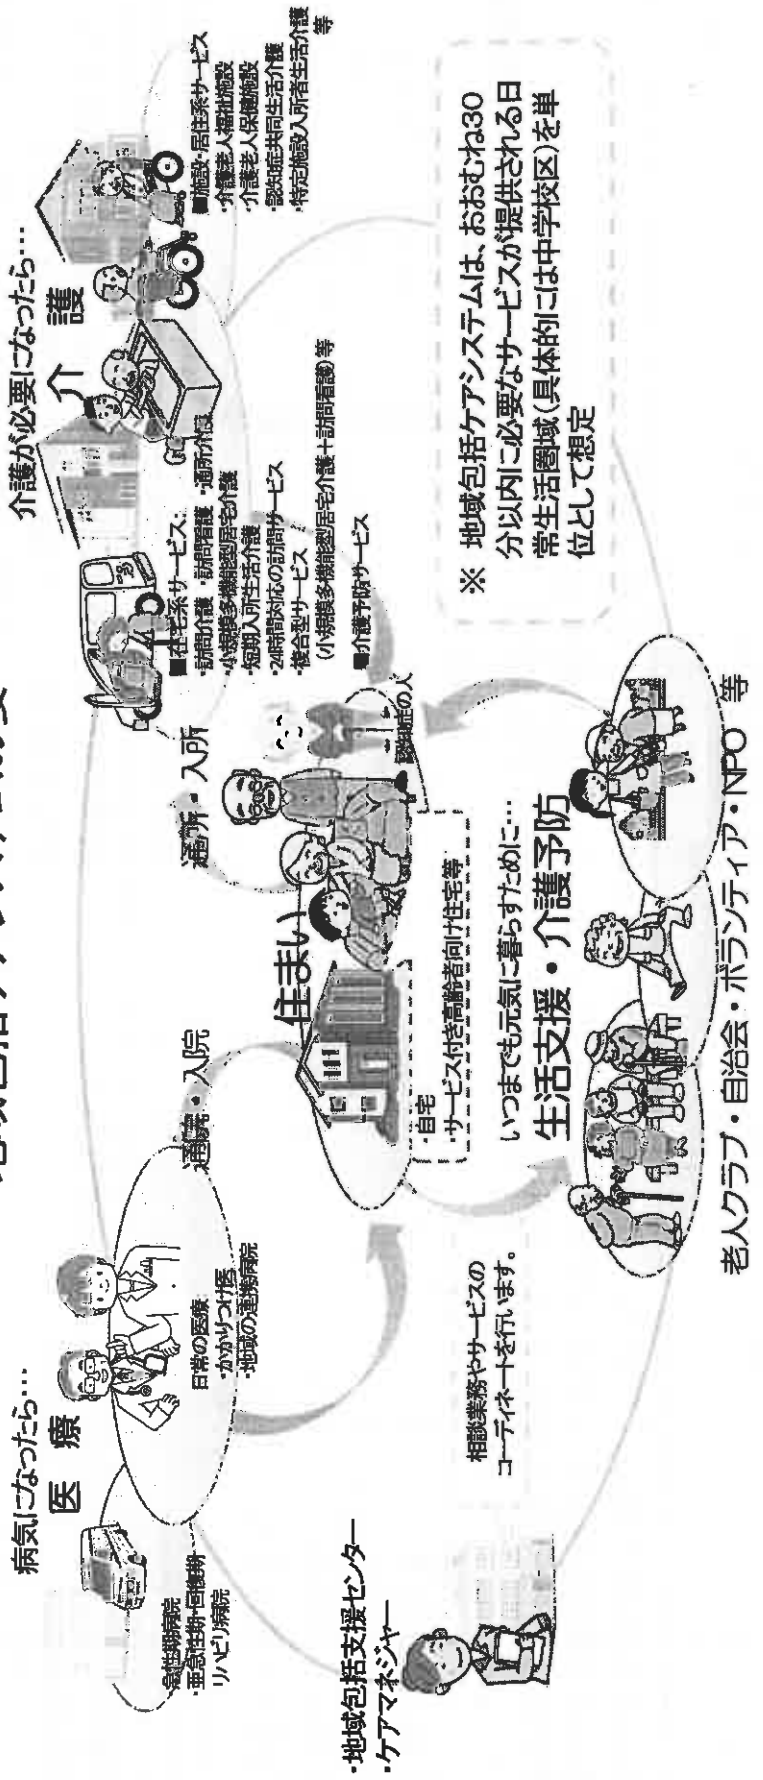 地域包括ケアシステムの姿
病気になったら…
医療
・急性期病院
・亜急性期・回復期
リハビリ病院
日常の医療:
・かかりつけ医
・地域の連携病院
通院・入院
介護が必要になったら…
介護
通所・入所
■在宅系サービス:
・訪問介護 ・訪問看護 ・通所介護
・小規模多機能型居宅介護
・短期入所生活介護
・24時間対応の訪問サービス
・複合型サービス
(小規模多機能型居宅介護+訪問看護)等
■介護予防サービス
■施設・居住系サービス
・介護老人福祉施設
・介護老人保健施設
・認知症共同生活介護
・特定施設入所者生活介護
等
住まい
認知症の人
・自宅
・サービス付き高齢者向け住宅等
・地域包括支援センター
・ケアマネジャー
相談業務やサービスの
コーディネートを行います。
いつまでも元気に暮らすために…
生活支援・介護予防
老人クラブ・自治会・ボランティア・NPO 等
※ 地域包括ケアシステムは、おおむね30
分以内に必要なサービスが提供される日
常生活圏域(具体的には中学校区)を単
位として想定